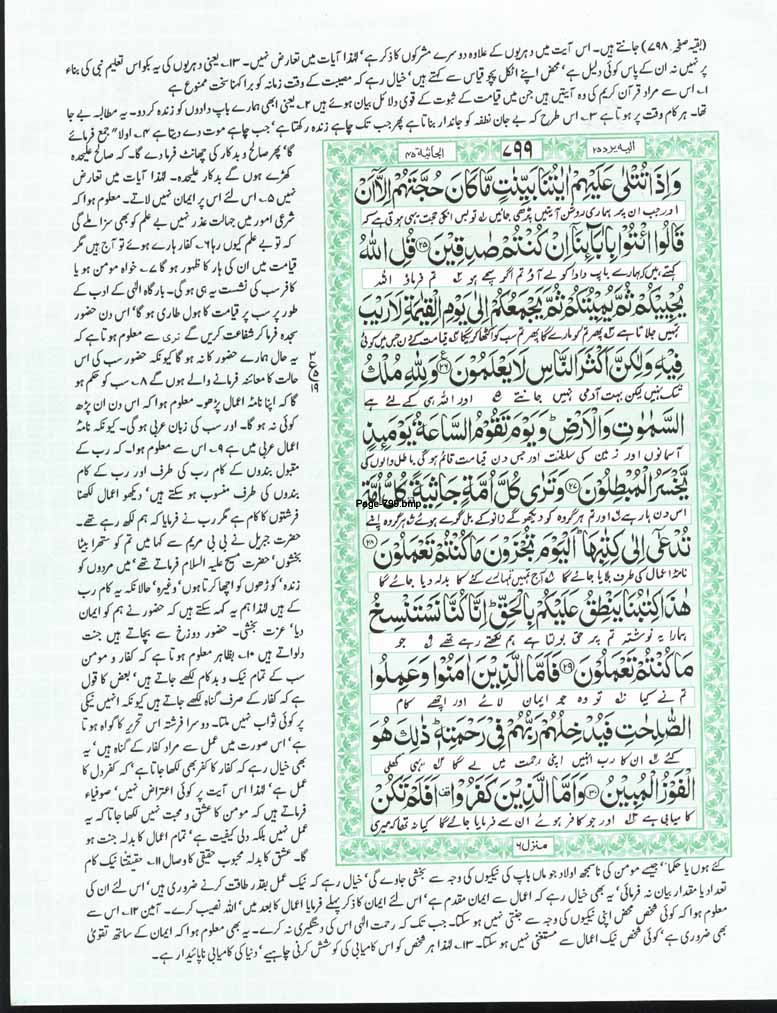 (بقیہ صفحہ ۷۹۸) جانتے ہیں۔ اس آیت میں دہریوں کے علاوہ دوسرے مشرکوں کا ذکر ہے، لہذا آیات میں تعارض نہیں۔ ۱۳۔ یعنی دہریوں کی یہ بکواس تعلیم نبی کی بناء
پر نہیں نہ ان کے پاس کوئی دلیل ہے، محض اپنے اٹکل پچو قیاس سے کہتے ہیں، خیال رہے کہ مصیبت کے وقت زمانہ کو برا کہنا سخت ممنوع ہے
۱۔ اس سے مراد قرآن کریم کی وہ آیتیں ہیں جن میں قیامت کے ثبوت کے قوی دلائل بیان ہوئے ہیں ۲۔ یعنی ابھی ہمارے باپ دادوں کو زندہ کر دو۔ یہ مطالبہ بے جا
تھا۔ ہر کام وقت پر ہوتا ہے ۳۔ اس طرح کہ بے جان نطفہ کو جاندار بناتا ہے پھر جب تک چاہے زندہ رکھتا ہے، جب چاہے موت دے دیتا ہے ۴۔ اولا" جمع فرمائے
گا، پھر صالح و بدکار کی چھانٹ فرما دے گا۔ کہ صالح علیحدہ
کھڑے ہوں گے بدکار علیحدہ۔ لہذا آیات میں تعارض
نہیں ۵۔ اس لئے اس پر ایمان نہیں لاتے۔ معلوم ہوا کہ
شرعی امور میں جہالت عذر نہیں بے علم کو بھی سزا ملے گی
کہ تو بے علم کیوں رہا ۶۔ کفار ہارے ہوئے تو آج ہیں مگر
قیامت میں ان کی ہار کا ظہور ہو گا ۷۔ خواہ مومن ہو یا
کافر سب کی نشست یہ ہی ہو گی۔ بارگاہ الٰہی کے ادب کے
طور پر سب پر قیامت کا ہول طاری ہو گا، اس دن حضور
سجدہ فرما کر شفاعت کریں گے تری سے معلوم ہوتا ہے کہ
یہ حال ہمارے حضور کا نہ ہو گا کیونکہ حضور سب کی اس
حالت کا معائنہ فرمانے والے ہوں گے ۸۔ سب کو حکم ہو
گا کہ اپنا نامۂ اعمال پڑھو۔ معلوم ہوا کہ اس دن ان پڑھ
کوئی نہ ہو گا۔ اور سب کی زبان عربی ہو گی۔ کیونکہ نامۂ
اعمال عربی میں ہے ۹۔ اس سے معلوم ہوا۔ کہ رب کے
مقبول بندوں کے کام رب کی طرف اور رب کے کام
بندوں کی طرف منسوب ہو سکتے ہیں، دیکھو اعمال لکھنا
فرشتوں کا کام ہے مگر رب نے فرمایا کہ ہم لکھ رہے تھے۔
حضرت جبریل نے بی بی مریم سے کہا میں تم کو ستھرا بیٹا
بخشوں، حضرت مسیح علیہ السلام فرماتے تھے، میں مردوں کو
زندہ، کوڑھوں کو اچھا کرتا ہوں، وغیرہ، حالانکہ یہ کام رب
کے ہیں لہذا ہم یہ کہہ سکتے ہیں کہ حضور نے ہم کو ایمان
دیا، عزت بخشی۔ حضور دوزخ سے بچاتے ہیں جنت
دلواتے ہیں ۱۰۔ بظاہر معلوم ہوتا ہے کہ کفار و مومن
سب کے تمام نیک و بد کام لکھے جاتے ہیں، بعض کا قول
ہے کہ کفار کے صرف گناہ لکھے جاتے ہیں کیونکہ انہیں نیکی
پر کوئی ثواب نہیں ملتا۔ دوسرا فرشتہ اس تحریر کا گواہ ہوتا
ہے، اس صورت میں عمل سے مراد کفار کے گناہ ہیں، یہ
بھی خیال رہے کہ کفار کا کفر بھی لکھا جاتا ہے، کہ کفر دل کا
عمل ہے، لہذا اس آیت پر کوئی اعتراض نہیں، صوفیاء
فرماتے ہیں کہ مومن کا عشق و محبت نہیں لکھا جاتا کہ یہ
عمل نہیں بلکہ دلی کیفیت ہے، تمام اعمال کا بدلہ جنت ہو
گا۔ عشق کا بدلہ محبوب حقیقی کا وصال ۱۱۔ حقیقتا نیک کام
الیہ یرد ۲۵
۷۹۹
الجاثیة ۴۵
وَاِذَا تُتْلٰى عَلَيْهِمْ اٰيٰتُنَا بَيِّنٰتٍ مَّا كَانَ حُجَّتَهُمْ اِلَّآ اَنْ
اور جب ان پر ہماری روشن آیتیں پڑھی جائیں تو بس انکی حجت یہی ہوتی ہے کہ
قَالُوا ائْتُوْا بِاٰبَآئِنَآ اِنْ كُنْتُمْ صٰدِقِيْنَ ﴿۲۵﴾ قُلِ اللّٰهُ
کہتے ہیں کہ ہمارے باپ دادا کو لے آؤ تم اگر سچے ہو تم فرماؤ اللہ
يُحْيِيْكُمْ ثُمَّ يُمِيْتُكُمْ ثُمَّ يَجْمَعُكُمْ اِلٰى يَوْمِ الْقِيٰمَةِ لَا رَيْبَ
تمہیں جلاتا ہے پھر تم کو مارے گا پھر تم سب کو اکٹھا کریگا قیامت کے دن جس میں کوئی
فِيْهِ وَلٰكِنَّ اَكْثَرَ النَّاسِ لَا يَعْلَمُوْنَ ﴿۲۶﴾ وَلِلّٰهِ مُلْكُ
شک نہیں لیکن بہت آدمی نہیں جانتے اور اللہ ہی کے لئے ہے
السَّمٰوٰتِ وَالْاَرْضِ وَيَوْمَ تَقُوْمُ السَّاعَةُ يَوْمَئِذٍ
آسمانوں اور زمین کی سلطنت اور جس دن قیامت قائم ہوگی باطل والوں کی
يَّخْسَرُ الْمُبْطِلُوْنَ ﴿۲۷﴾ وَتَرٰى كُلَّ اُمَّةٍ جَاثِيَةً كُلُّ اُمَّةٍ
Page-799.bmp
اس دن ہار ہے اور تم ہر گروہ کو دیکھو گے زانو کے بل گرے ہوئے ہر گروہ اپنے
تُدْعٰٓى اِلٰى كِتٰبِهَا اَلْيَوْمَ تُجْزَوْنَ مَا كُنْتُمْ تَعْمَلُوْنَ ﴿۲۸﴾
نامۂ اعمال کی طرف بلایا جائے گا آج تمہیں تمہارے کئے کا بدلہ دیا جائے گا
هٰذَا كِتٰبُنَا يَنْطِقُ عَلَيْكُمْ بِالْحَقِّ اِنَّا كُنَّا نَسْتَنْسِخُ
ہمارا یہ نوشتہ تم پر حق بولتا ہے ہم لکھتے رہے تھے جو
مَا كُنْتُمْ تَعْمَلُوْنَ ﴿۲۹﴾ فَاَمَّا الَّذِيْنَ اٰمَنُوْا وَعَمِلُوا
تم نے کیا تو وہ جو ایمان لائے اور اچھے کام
الصّٰلِحٰتِ فَيُدْخِلُهُمْ رَبُّهُمْ فِيْ رَحْمَتِهٖ ذٰلِكَ هُوَ
کئے ان کا رب انہیں اپنی رحمت میں لے گا یہی کھلی
الْفَوْزُ الْمُبِيْنُ ﴿۳۰﴾ وَاَمَّا الَّذِيْنَ كَفَرُوْا اَفَلَمْ تَكُنْ
کامیابی ہے اور جو کافر ہوئے ان سے فرمایا جائے گا کیا نہ تھا کہ میری
منزل ۶
کئے ہوں یا حکما"، جیسے مومن کی ناسمجھ اولاد جو ماں باپ کی نیکیوں کی وجہ سے بخشی جاوے گی، خیال رہے کہ نیک عمل بقدر طاقت کرنے ضروری ہیں، اس لئے ان کی
تعداد یا مقدار بیان نہ فرمائی، یہ بھی خیال رہے کہ اعمال سے ایمان مقدم ہے، اس لئے ایمان کا ذکر پہلے فرمایا اعمال کا بعد میں، اللہ نصیب کرے۔ آمین ۱۲۔ اس سے
معلوم ہوا کہ کوئی شخص محض اپنی نیکیوں کی وجہ سے جنتی نہیں ہو سکتا۔ جب تک کہ رحمت الٰہی اس کی دستگیری نہ کرے۔ یہ بھی معلوم ہوا کہ ایمان کے ساتھ تقویٰ
بھی ضروری ہے، کوئی شخص نیک اعمال سے مستغنی نہیں ہو سکتا۔ ۱۳۔ لہذا ہر شخص کو اس کامیابی کی کوشش کرنی چاہیے، دنیا کی کامیابی ناپائیدار ہے۔